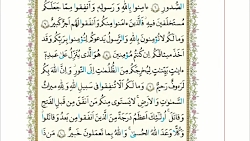 ٱلصُّدُورِ ٦ ءَامِنُوا۟ بِٱللَّهِ وَرَسُولِهِۦ وَأَنفِقُوا۟ مِمَّا جَعَلَكُم
مُّسْتَخْلَفِينَ فِيهِ فَٱلَّذِينَ ءَامَنُوا۟ مِنكُمْ وَأَنفَقُوا۟ لَهُمْ أَجْرٌ كَبِيرٌ ٧
وَمَا لَكُمْ لَا تُؤْمِنُونَ بِٱللَّهِ وَٱلرَّسُولُ يَدْعُوكُمْ لِتُؤْمِنُوا۟ بِرَبِّكُمْ وَقَدْ
أَخَذَ مِيثَٰقَكُمْ إِن كُنتُم مُّؤْمِنِينَ ٨ هُوَ ٱلَّذِى يُنَزِّلُ عَلَىٰ عَبْدِهِۦٓ
ءَايَٰتٍۭ بَيِّنَٰتٍ لِّيُخْرِجَكُم مِّنَ ٱلظُّلُمَٰتِ إِلَى ٱلنُّورِ وَإِنَّ ٱللَّهَ بِكُمْ
لَرَءُوفٌ رَّحِيمٌ ٩ وَمَا لَكُمْ أَلَّا تُنفِقُوا۟ فِى سَبِيلِ ٱللَّهِ وَلِلَّهِ مِيرَٰثُ
ٱلسَّمَٰوَٰتِ وَٱلْأَرْضِ لَا يَسْتَوِى مِنكُم مَّنْ أَنفَقَ مِن قَبْلِ ٱلْفَتْحِ
وَقَٰتَلَ أُو۟لَٰٓئِكَ أَعْظَمُ دَرَجَةً مِّنَ ٱلَّذِينَ أَنفَقُوا۟ مِنۢ بَعْدُ وَقَٰتَلُوا۟
وَكُلًّا وَعَدَ ٱللَّهُ ٱلْحُسْنَىٰ وَٱللَّهُ بِمَا تَعْمَلُونَ خَبِيرٌ ١٠